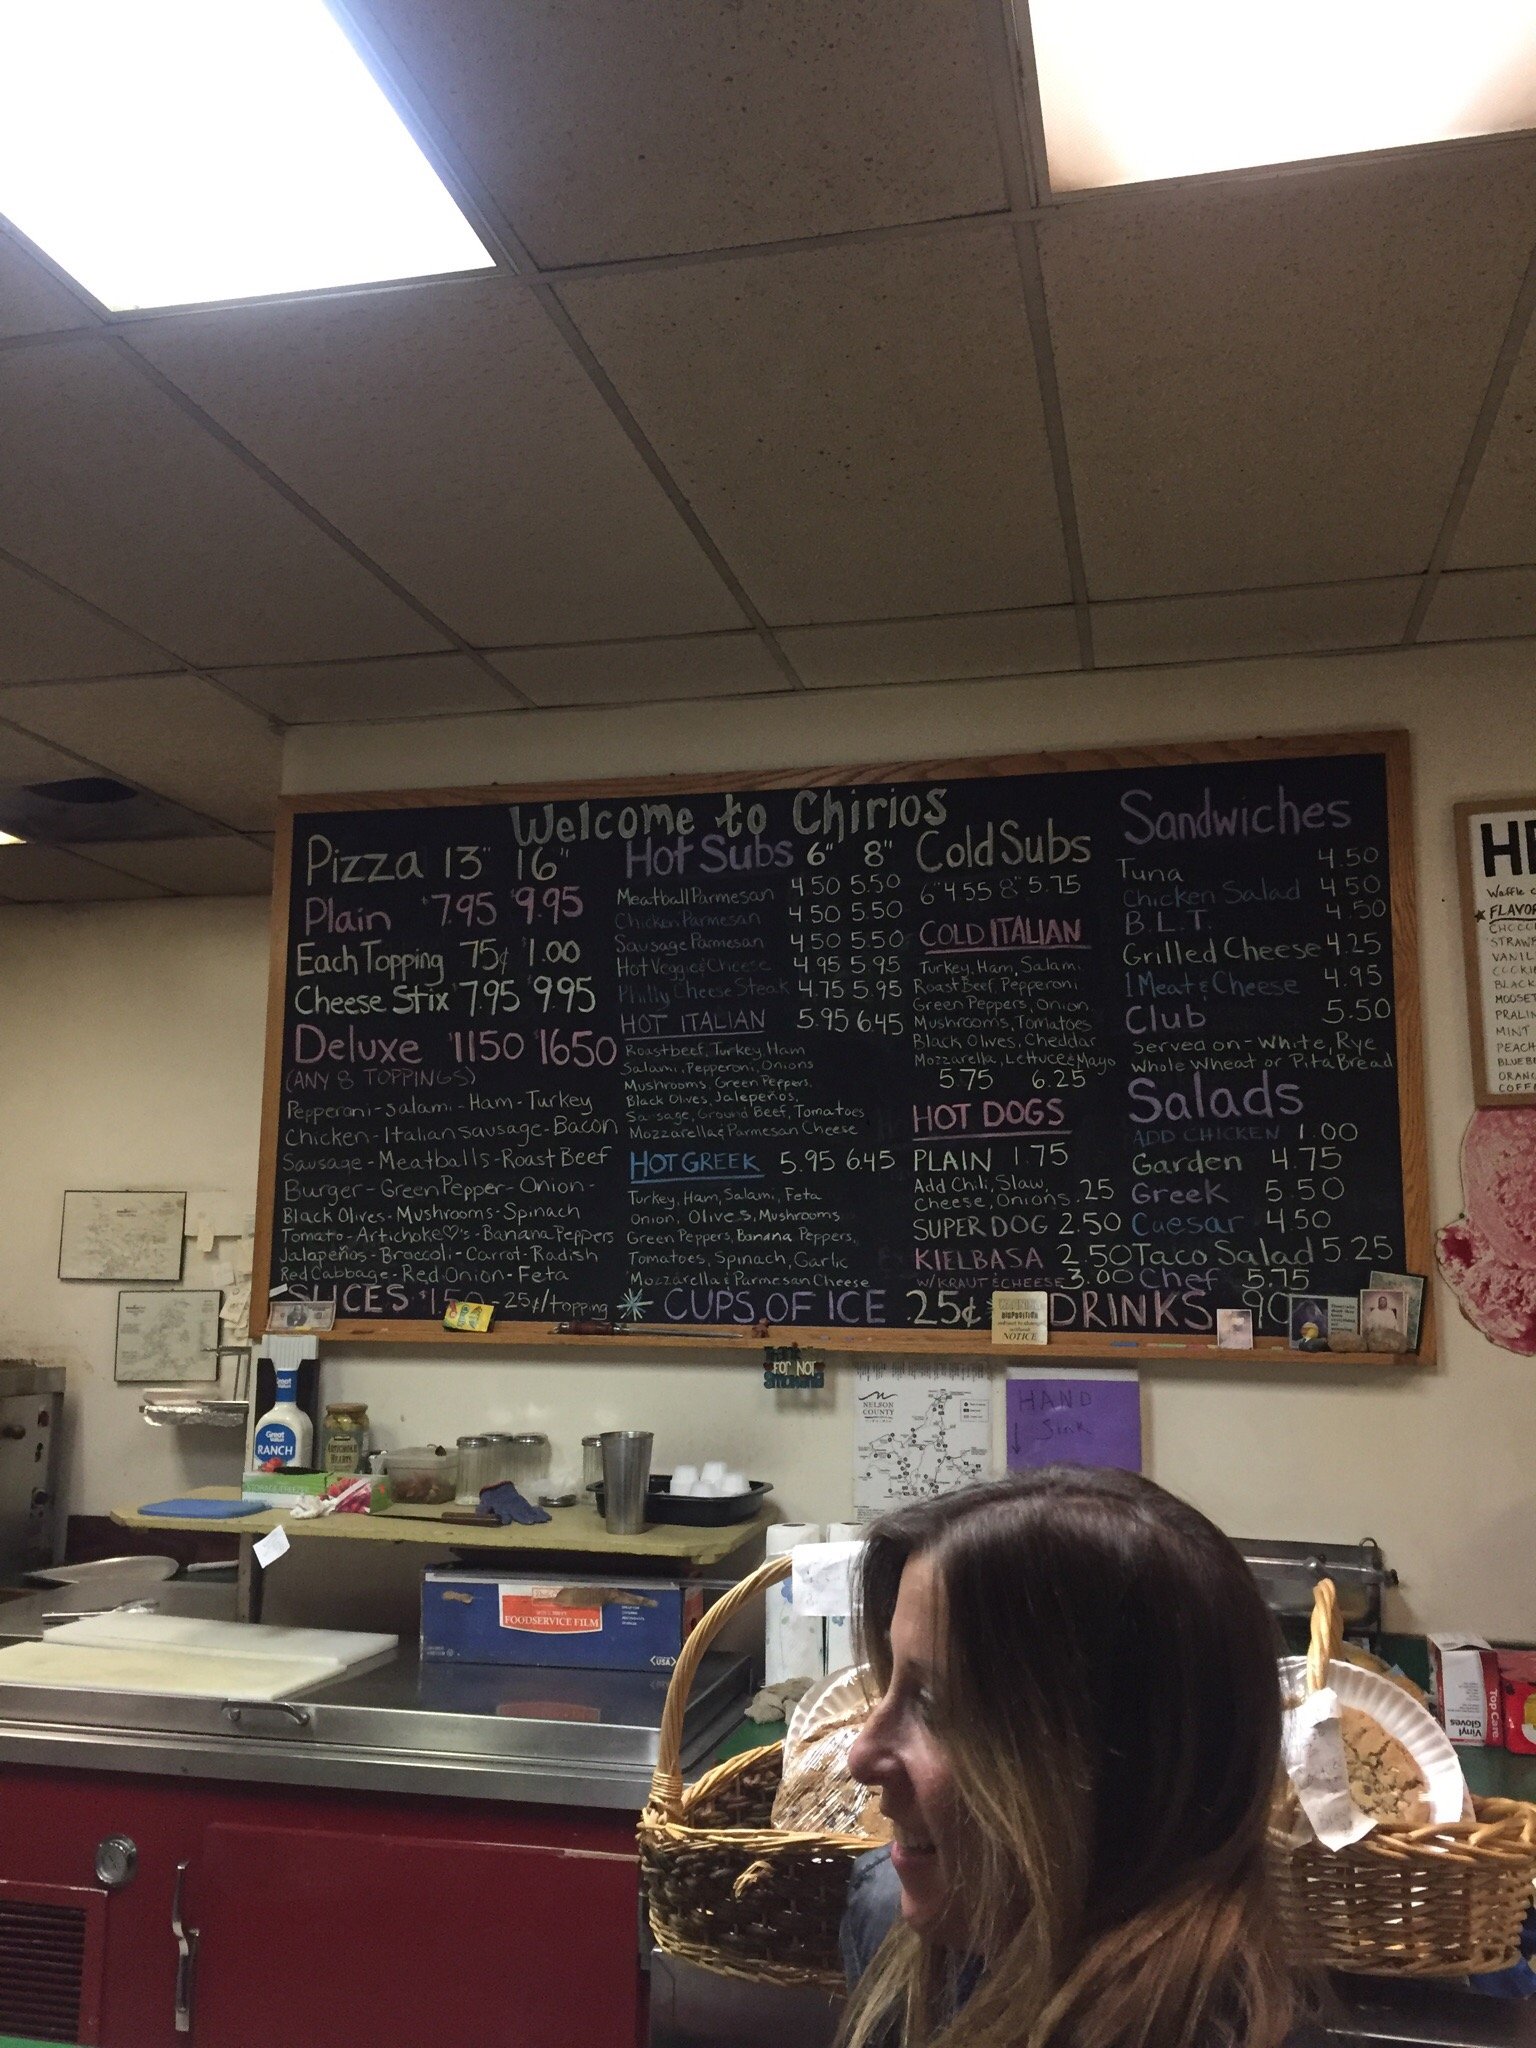 Welcome to Chirios
Pizza 13" 16"
Plain $7.95 $9.95
Each Topping 75¢ $1.00
Cheese Stix $7.95 9.95
Deluxe $1150 $1650
(ANY 8 TOPPINGS)
Pepperoni-Salami-Ham-Turkey
Chicken-Italian Sausage-Bacon
Sausage-Meatballs-Roast Beef
Burger-Green Pepper-Onion-
Black Olives-Mushrooms-Spinach
Tomato-Artichoke♡'s-Banana Peppers
Jalapeños-Broccoli-Carrot-Radish
Red Cabbage-Red Onion-Feta
SLICES $1.50-25¢/topping
Hot Subs 6" 8"
Meatball Parmesan 4.50 5.50
Chicken Parmesan 4.50 5.50
Sausage Parmesan 4.50 5.50
Hot Veggie & Cheese 4.95 5.95
Philly Cheese Steak 4.75 5.95
HOT ITALIAN 5.95 6.45
Roastbeef, Turkey, Ham
Salami, Pepperoni, Onions
Mushrooms, Green Peppers,
Black Olives, Jalepeños,
Sausage, Ground Beef, Tomatoes
Mozzarella & Parmesan Cheese
HOT GREEK 5.95 6.45
Turkey, Ham, Salami, Feta
Onion, Olives, Mushrooms
Green Peppers, Banana Peppers,
Tomatoes, Spinach, Garlic
Mozzarella & Parmesan Cheese
CUPS OF ICE .25¢
Cold Subs
6" 4.55 8" 5.75
COLD ITALIAN
Turkey, Ham, Salami
Roast Beef, Pepperoni
Green Peppers, Onion
Mushrooms, Tomatoes
Black Olives, Cheddar
Mozzarella, Lettuce & Mayo
5.75 6.25
HOT DOGS
PLAIN 1.75
Add Chili, Slaw,
Cheese, Onions .25
SUPER DOG 2.50
KIELBASA 2.50
W/KRAUT & CHEESE 3.00
DRINKS .90
Sandwiches
Tuna 4.50
Chicken Salad 4.50
B.L.T. 4.50
Grilled Cheese 4.25
1 Meat & Cheese 4.95
Club 5.50
Served on-White, Rye
Whole Wheat or Pita Bread
Salads
ADD CHICKEN 1.00
Garden 4.75
Greek 5.50
Caesar 4.50
Taco Salad 5.25
Chef 5.75
Waffle
FLAVOR
VANIL
BLACK
MOOSET
PRALIN
MINT
PEACH
BLUEBE
ORANG
COFF
NOTICE
FOR NOT
SMOKING
NELSON
COUNTY
HAND
Sink
Great
Value
Great
Value
RANCH
ARTICHOKE
HEARTS
FOODSERVICE FILM
USA
Vinyl
Gloves
Top Care